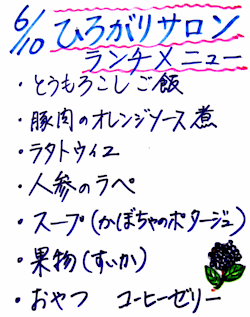 6/10 ひろがりサロン
ランチメニュー
・とうもろこしご飯
・豚肉のオレンジソース煮
・ラタトウイユ
・人参のラペ
・スープ(かぼちゃのポタージュ)
・果物(すいか)
・おやつ コーヒーゼリー